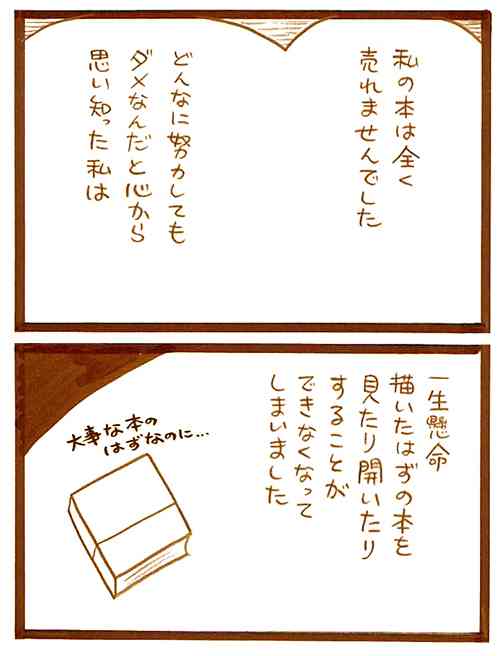 私の本は全く
売れませんでした
どんなに努力しても
ダメなんだと心から
思い知った私は
一生懸命
描いたはずの本を
見たり開いたり
することが
できなくなって
しまいました
大事な本の
はずなのに…